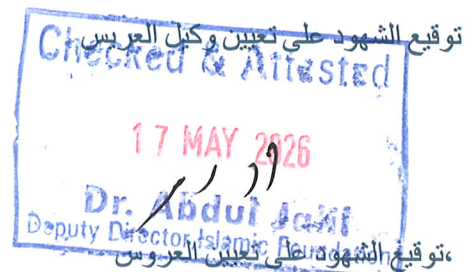 توقيع الشهود على تعيين وكيل العريس
Checked & Attested
17 MAY 2026
Dr. Abdul Jalil
Deputy Director, Islamic Foundation
،توقيع الشهود على تعيين العروس